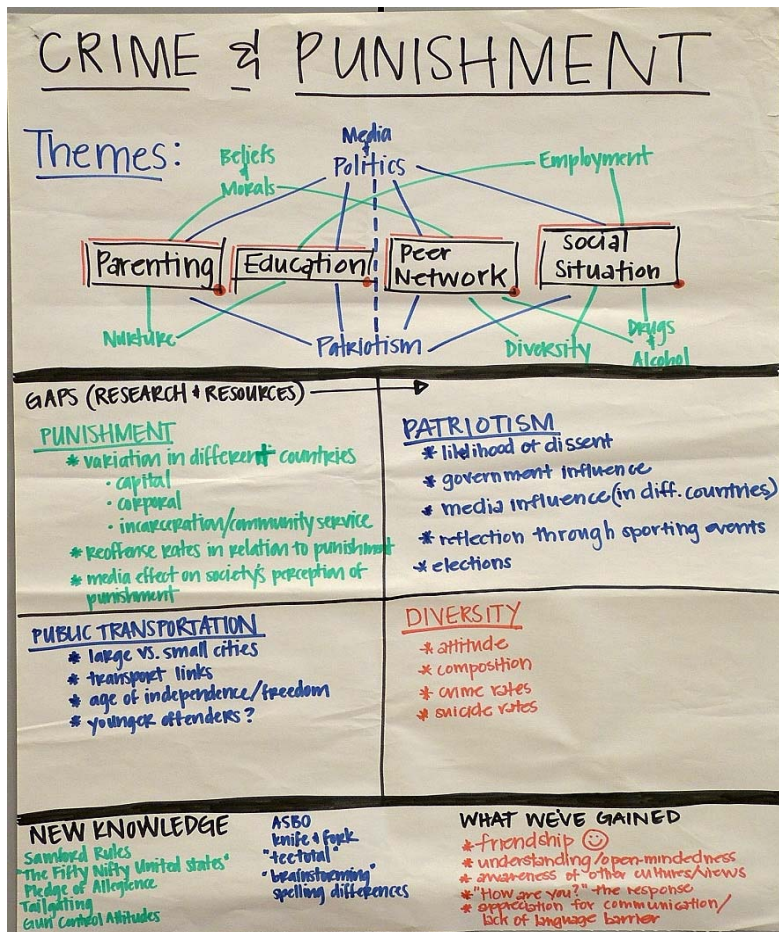 CRIME & PUNISHMENT
Themes:
Beliefs
&
Morals
Media
&
Politics
Employment
Parenting
Education
Peer
Network
Social
Situation
Nurture
Patriotism
Diversity
Drugs
&
Alcohol
GAPS (RESEARCH & RESOURCES)
PUNISHMENT
* variation in different countries
• capital
• corporal
• incarceration/community service
* Reoffense rates in relation to punishment
* media effect on society's perception of
punishment
PATRIOTISM
* likelihood of dissent
* government influence
* media influence (in diff. countries)
* reflection through sporting events
* elections
PUBLIC TRANSPORTATION
* large vs. small cities
* transport links
* age of independence/freedom
* younger offenders?
DIVERSITY
* attitude
* composition
* crime rates
* suicide rates
NEW KNOWLEDGE
Samford Rules
"The Fifty Nifty United States"
Pledge of Allegience
Tailgating
Gun Control Attitudes
ASBO
knife & fork
"teetotal"
"brainstorming"
spelling differences
WHAT WE'VE GAINED
* friendship ☺
* understanding/open-mindedness
* awareness of other cultures/views
* "How are you?" the response
* appreciation for communication/
lack of language barrier